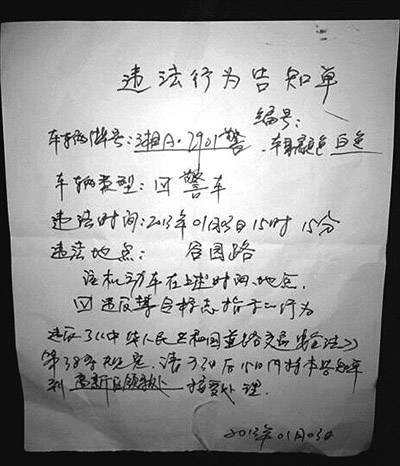 违法行为告知单
编号:
车辆牌号:湘A·2901警 车身颜色 白色
车辆类型:☑警车
违法时间:2013年01月03日15时15分
违法地点: 谷园路
该机动车在上述时间、地点,
☑违反禁令标志指示行为
违反了《中华人民共和国道路交通安全法》
第38条规定。请于3日后15日内持本告知单
到 高新区领勤处 接受处理。
2013年01月03日